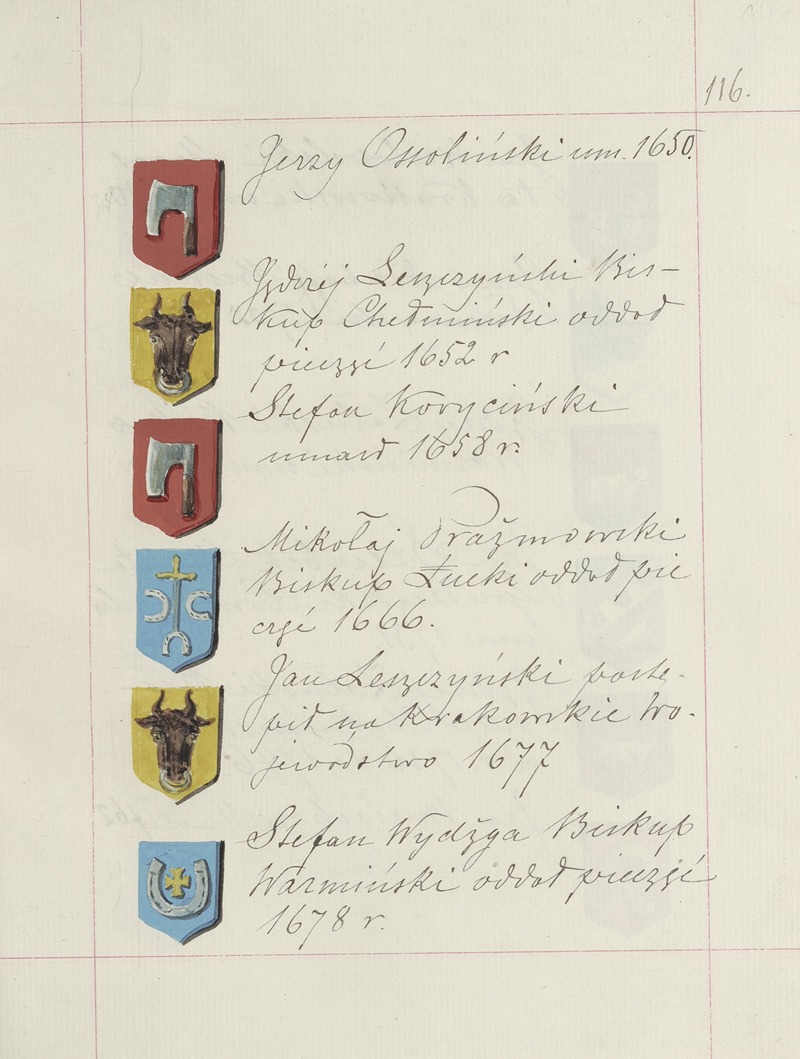 116.
Jerzy Ossoliński um. 1650.
Jędrzéj Leszczyński Bis-
kup Chełmiński oddał
pieczęć 1652 r
Stefan Koryciński
umarł 1658 r.
Mikołaj Prażmowski
Biskup Łucki oddał pie
częć 1666.
Jan Leszczyński postą-
pił na Krakowskie Wo-
jewództwo 1677
Stefan Wydżga Biskup
Warmiński oddał pieczęć
1678 r.